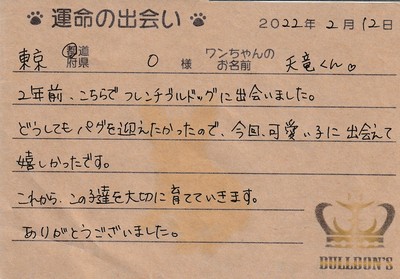 運命の出会い
2022年2月12日
東京 都道府県 O 様 ワンちゃんのお名前 天竜くん。
2年前、こちらでフレンチブルドッグに出会いました。
どうしてもパグを迎えたかったので、今回、可愛い子に出会えて
嬉しかったです。
これから、この子達を大切に育てていきます。
ありがとうございました。
BULLBON'S